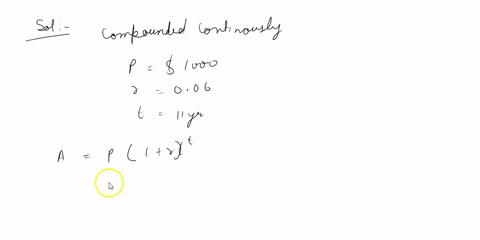 Sol:- Compounded Continously
P = $ 1000
r = 0.06
t = 11 yr
A = P (1+r)^t